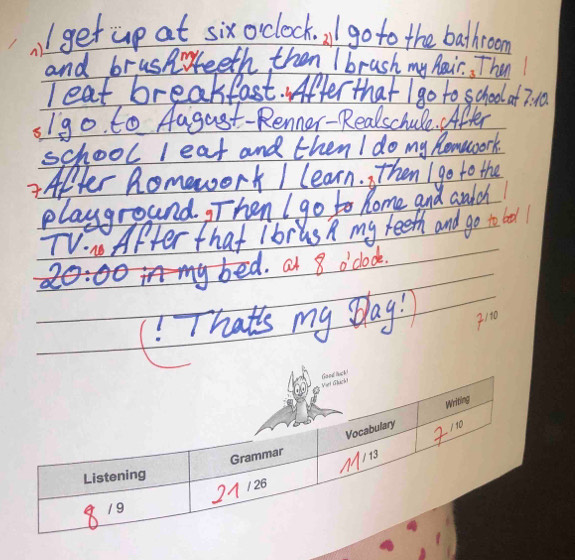 1) I get up at six o'clock. 2) I go to the bathroom
and brush my teeth then I brush my hair. 3 Then !
I eat breakfast. 4 After that I go to school at 7:10.
5 I go to August-Renner-Realschule. 6 After
school I eat and then I do my homework.
7 After homework I learn. 8 Then I go to the
playground. 9 Then I go to home and watch !
TV. 10 After that I brush my teeth and go to bed !
20:00 in my bed. at 8 o'clock.
(! That's my Day!)
7/10
Good luck!
Viel Glück!
Listening Grammar Vocabulary Writing
8 / 9 21 / 26 11 / 13 7 / 10